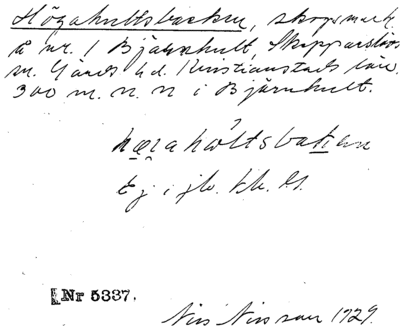 Högahultsbacken, skogsmark
å nr. 1 Bjärnhult, Skepparslövs
sn. Gärds hd. Kristianstads län.
300 m. n. n i Bjärnhult.
høgahòltsbakan
Ej i jb. kl.
Nr 5337.
Nils Nilsson 1929.